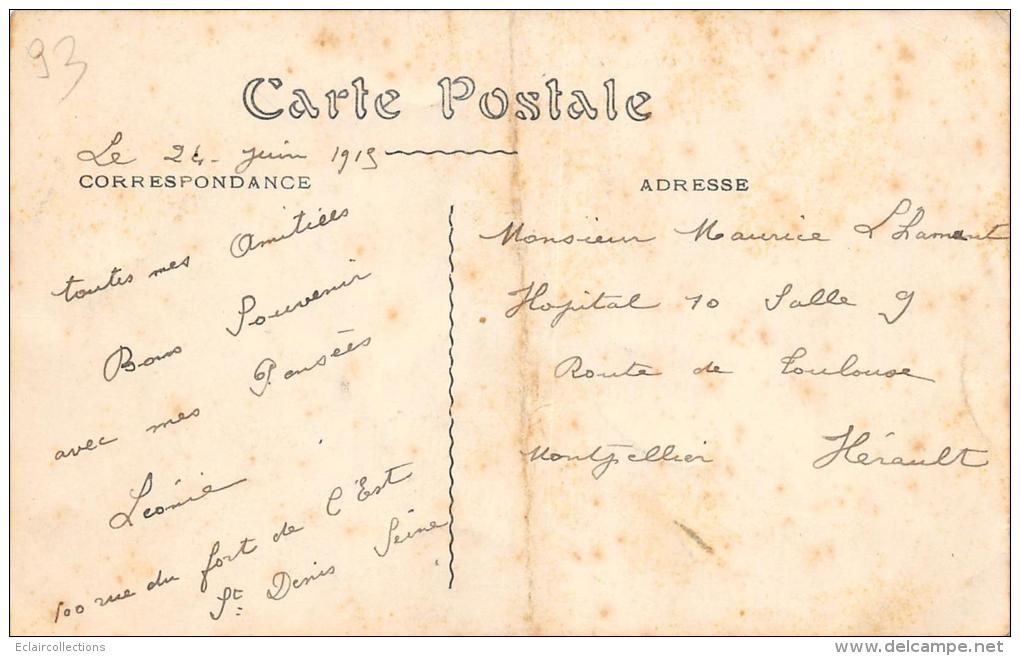 93
Carte Postale
Le 24 - Juin 1915
CORRESPONDANCE
toutes mes Amitiées
Bons Souvenir
avec mes Pensées
Léonie
100 rue du fort de l'Est
St Denis Seine
ADRESSE
Monsieur Maurice Lhament
Hopital 10 Salle 9
Route de Toulouse
Montpellier Hérault
Eclaircollections
www.delcampe.net